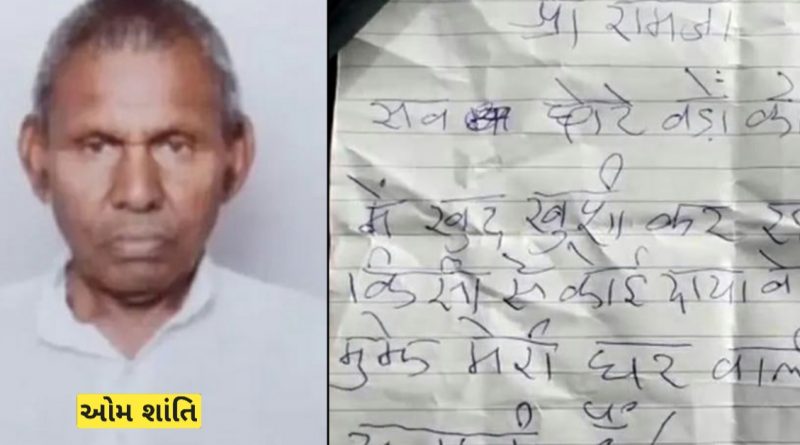 ઓમ શાંતિ
रामजी
सव छोटे वड़ों के
में खुद खुशी कर
किसी से कोई दाया वे
मुझे मेरी घर वाल